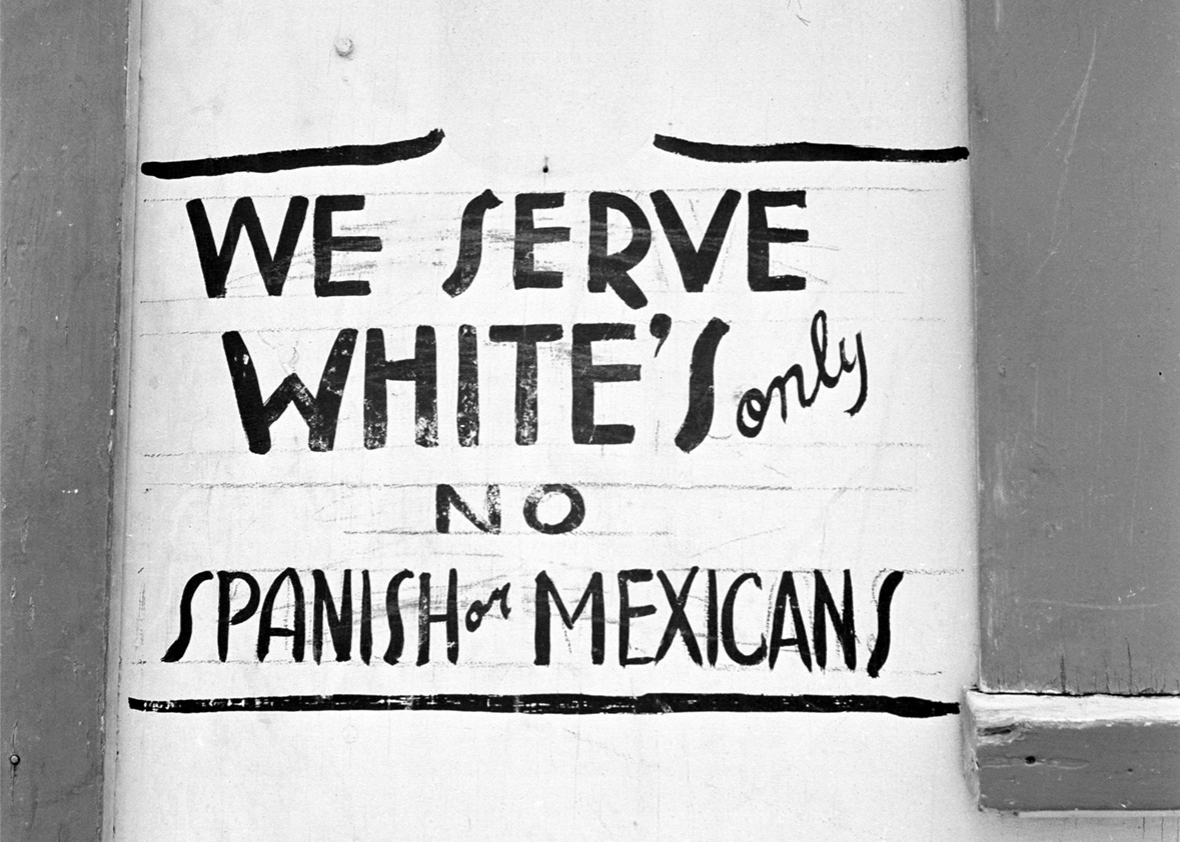 WE SERVE
WHITE'S only
NO
SPANISH or MEXICANS